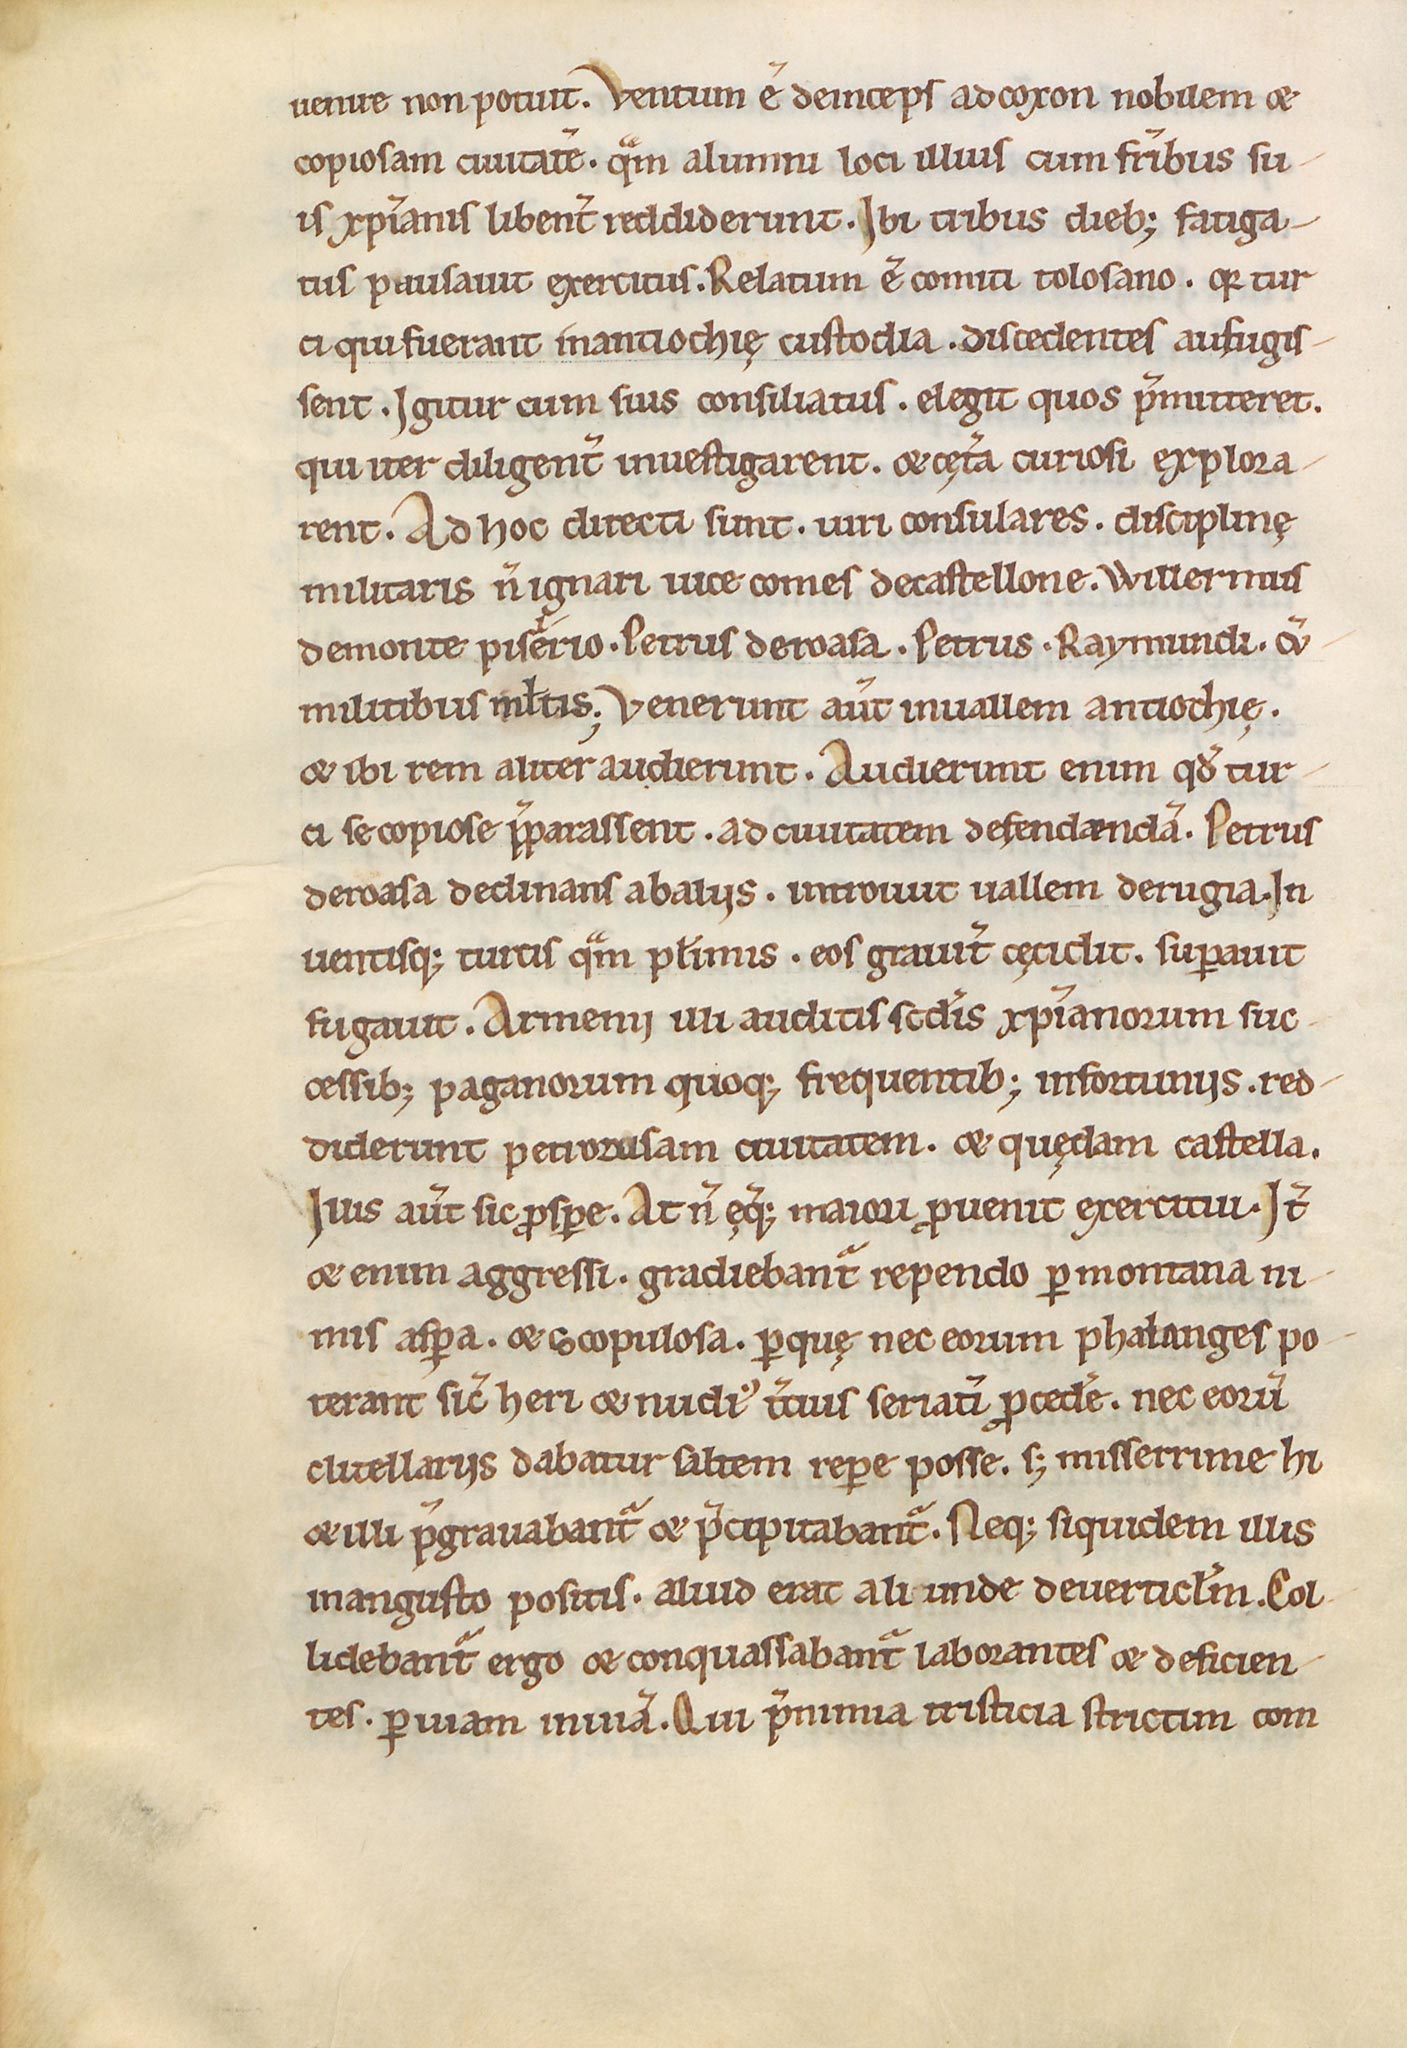 uenire non potuit. Ventum ē deinceps ad coxon nobilem &
copiosam ciuitatē. qͣm alumni loci illius cum frībus su-
is xp̄ianis libent̄ reddiderunt. Ibi tribus dieb; fatiga-
tus pausauit exercitus. Relatum ē comiti tolosano. qꝛ tur
ci qui fuerant in antiochię custodia. discedentes aufugis-
sent. Igitur cum suis consiliatus. elegit quos p̄mitteret.
qui iter diligent̄ inuestigarent. & cęt̄a curiosi explora-
rent. Ad hoc directi sunt. uiri consulares. disciplinę
militaris n̄ ignari uice comes de castellone. Willermus
de monte pisłerio. Petrus de roasa. Petrus. Raymundi. cū-
militibus ml̄tis; Venerunt aūt in uallem antiochię.
& ibi rem aliter audierunt. Audierunt enim qd̄ tur-
ci se copiose p̄pararassent. ad ciuitatem defendaendā. Petrus
de roasa declinans ab alijs. introiuit uallem de rugia. In
uentisq; turcis qͣm pl̄imis. eos grauit̄ cęcidit. suꝑauit
fugauit. Armenij illi auditis scd̄is xp̄ianorum suc-
cessib; paganorum quoq; frequentib; infortunijs. red-
diderunt petro rusam ciuitatem. & quędam castella.
Illis aūt sic ꝓsꝑe. At n̄ ęq̄; maiori ꝓuenit exercitui. It̄
& enim aggressi. gradiebant᷑ rependo ꝑ montana ni-
mis asꝑa. & scopulosa. ꝑ quę nec eorum phalanges po-
terant sic̄ heri & nudi᷒ t̄cius seriatī ꝓceder̄e. nec eorū
clitellarijs dabatur saltem reꝑe posse. s; misserrime hi
& illi p̄grauabant᷑ & p̄cipitabant᷑. Neq; siquidem illis
in angusto positis. aliud erat ali unde deuerticl̄m. Col-
lidebant᷑ ergo & conquassabant᷑ laborantes & deficien-
tes. ꝑ uiam inuiā. Qui p̄ nimia tristicia strictim com